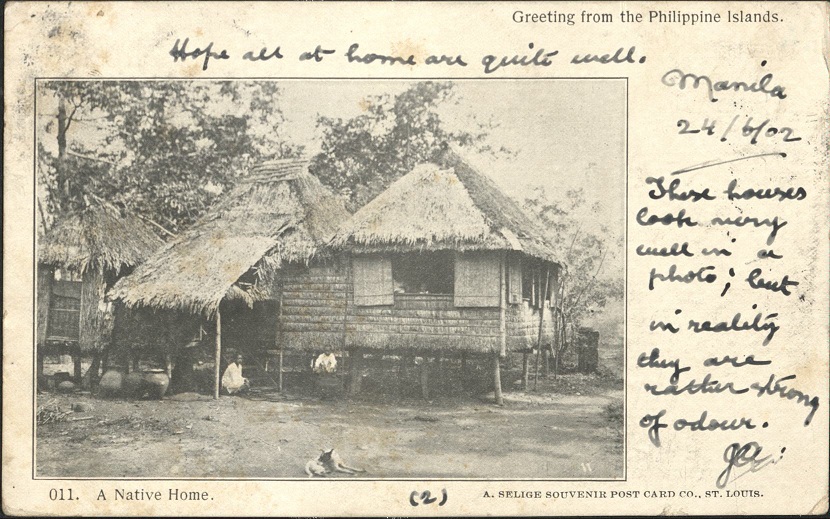 Greeting from the Philippine Islands.
Hope all at home are quite well.
Manila
24/6/02
These houses
look very
well in a
photo; but
in reality
they are
rather strong
of odour.
011. A Native Home.
(2)
A. SELIGE SOUVENIR POST CARD CO., ST. LOUIS.